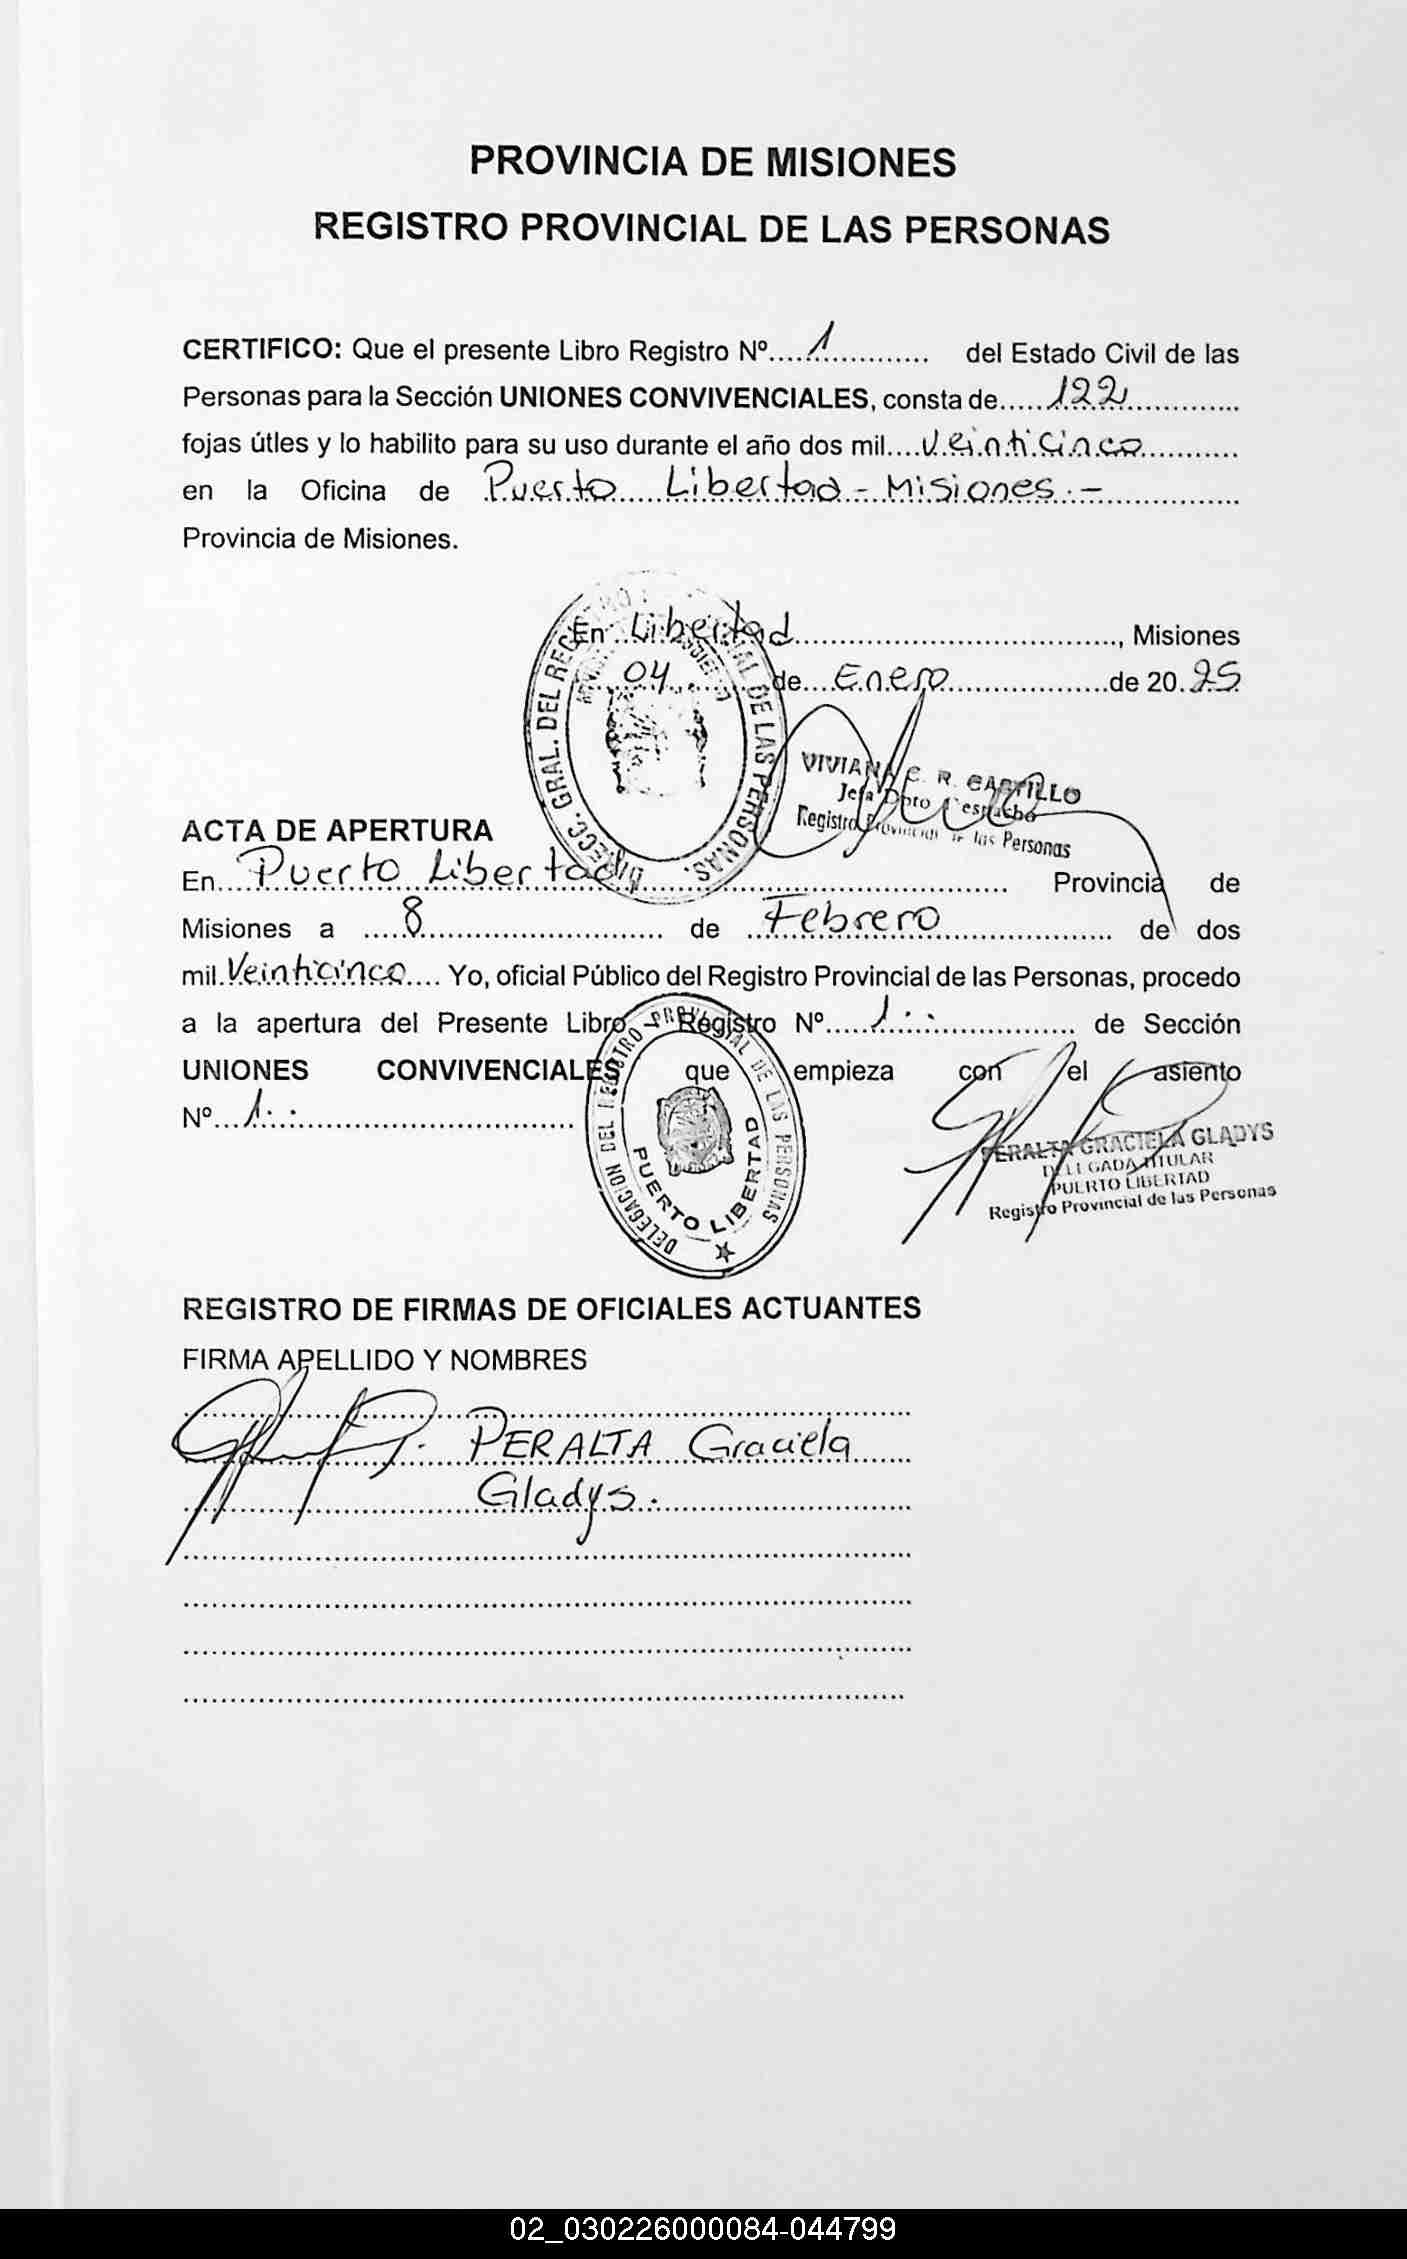 PROVINCIA DE MISIONES
REGISTRO PROVINCIAL DE LAS PERSONAS
CERTIFICO: Que el presente Libro Registro Nº....1.............. del Estado Civil de las
Personas para la Sección UNIONES CONVIVENCIALES, consta de.....122..............
fojas útles y lo habilito para su uso durante el año dos mil....Veinticinco...........
en la Oficina de Puerto Libertad - Misiones.-
Provincia de Misiones.
En Libertad......................................, Misiones
04 de....Enero....................de 20.25
DIRECC. GRAL. DEL REGISTRO PROVINCIAL DE LAS PERSONAS
VIVIANA C. R. CASTILLO
Jefa Dpto Despacho
Registro Provincial de las Personas
ACTA DE APERTURA
En....Puerto Libertad...................................... Provincia de
Misiones a .....8.......................... de ...Febrero...................... de dos
mil.Veinticinco.... Yo, oficial Público del Registro Provincial de las Personas, procedo
a la apertura del Presente Libro Registro Nº.....1.................... de Sección
UNIONES CONVIVENCIALES que empieza con el asiento
Nº...1...................................
DELEGACION DEL REGISTRO PROVINCIAL DE LAS PERSONAS
PUERTO LIBERTAD
PERALTA GRACIELA GLADYS
DELEGADA TITULAR
PUERTO LIBERTAD
Registro Provincial de las Personas
REGISTRO DE FIRMAS DE OFICIALES ACTUANTES
FIRMA APELLIDO Y NOMBRES
PERALTA Graciela
Gladys.
02_030226000084-044799